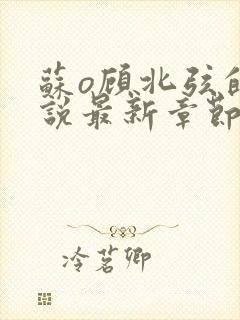 蘇o顾北弦的
說最新章節
冷茗卿